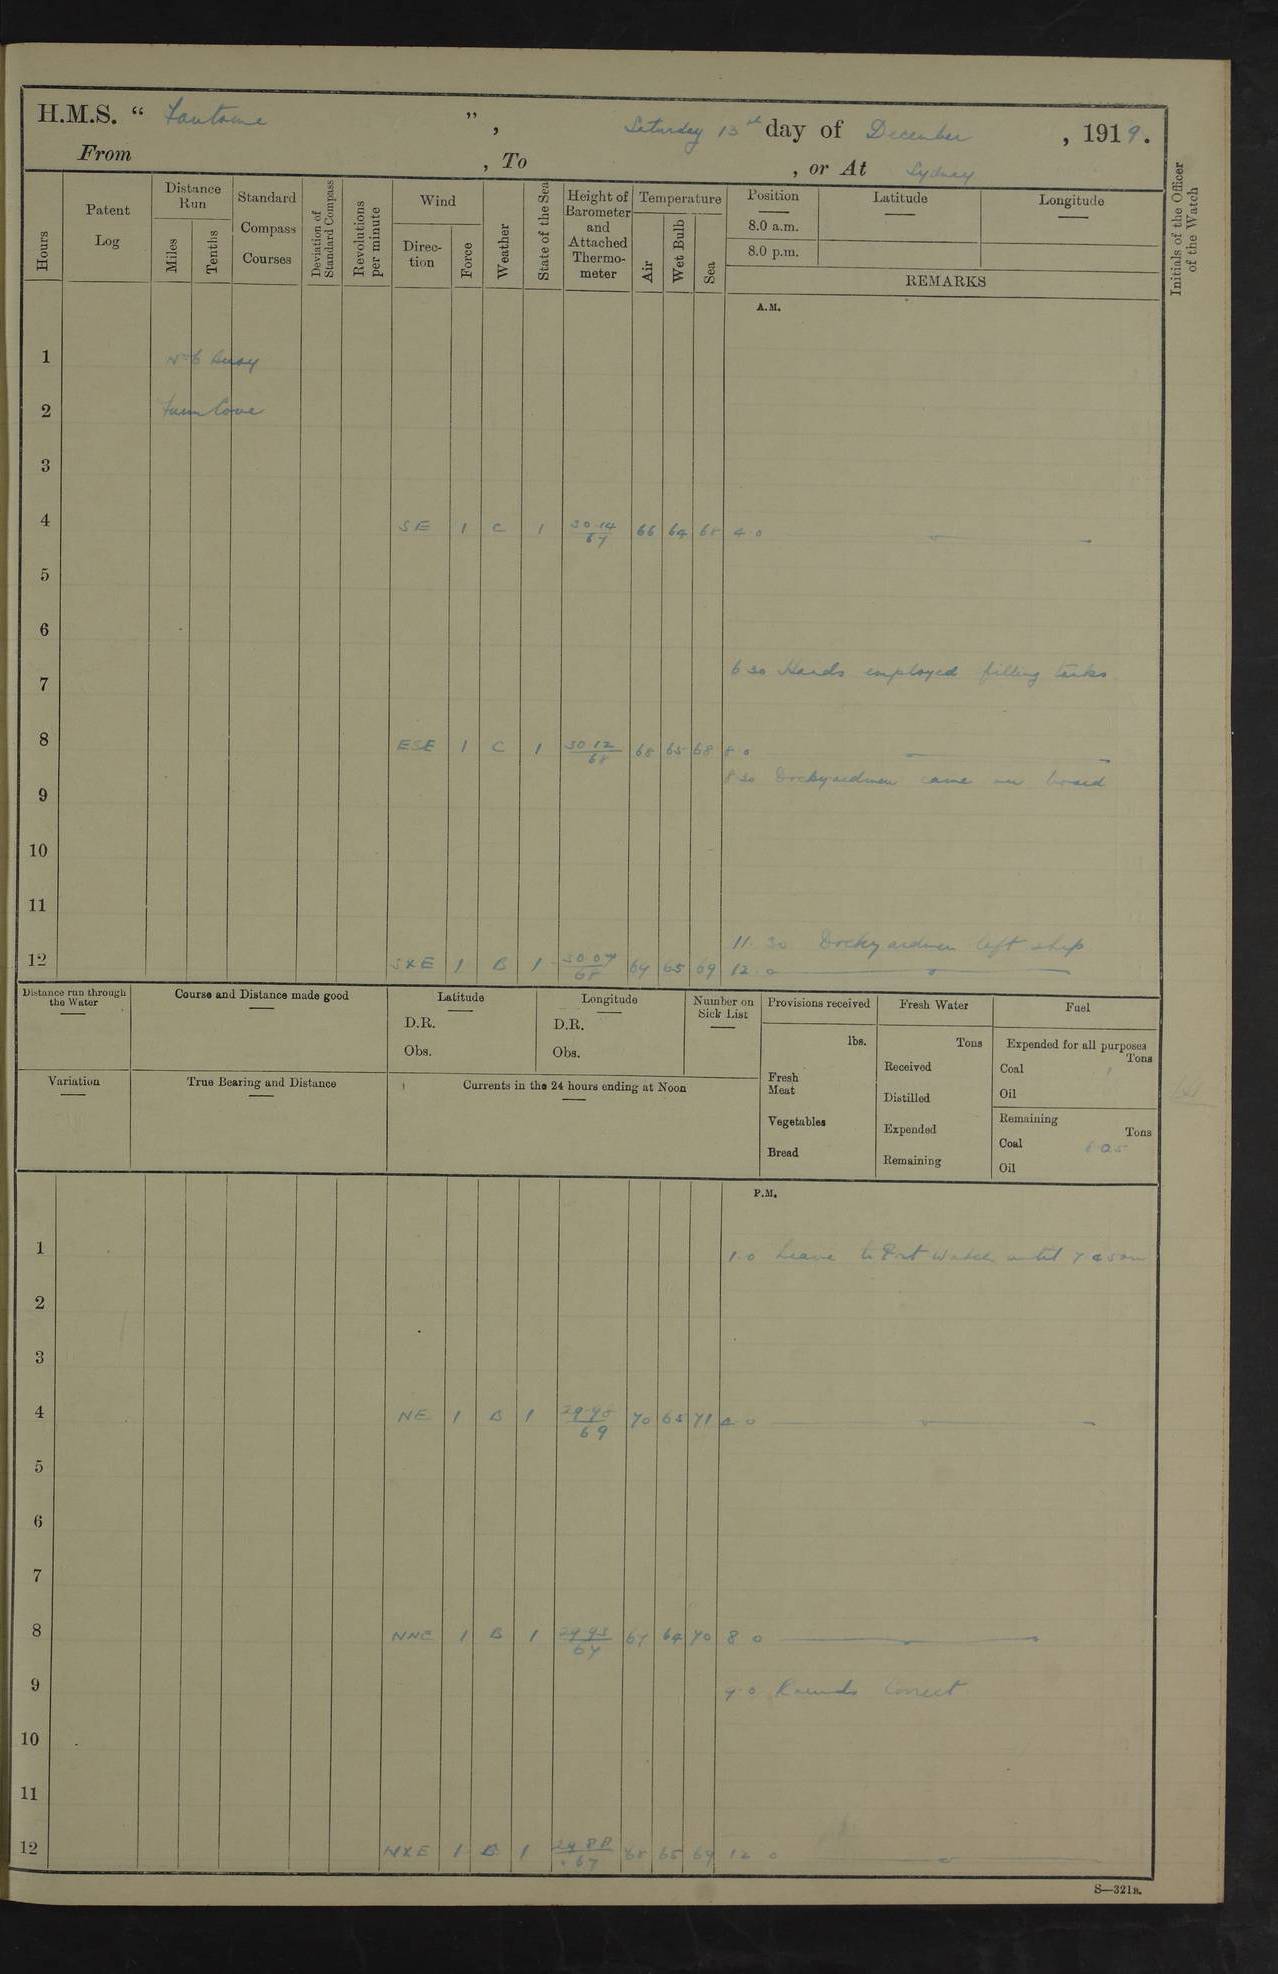 H.M.S. “ Fantome ” , Saturday 13th day of December , 1919.
From , To , or At Sydney
Hours
Patent Log
Distance Run
Miles
Tenths
Standard Compass Courses
Deviation of Standard Compass
Revolutions per minute
Wind
Direction
Force
Weather
State of the Sea
Height of Barometer and Attached Thermometer
Temperature
Air
Wet Bulb
Sea
Position
8.0 a.m.
8.0 p.m.
Latitude
Longitude
REMARKS
Initials of the Officer of the Watch
A.M.
1 No 6 buoy
2 Farm Cove
3
4 SE 1 C 1 30.14/67 66 64 68 4.0
5
6
6 30 Hands employed filling tanks
7
8 ESE 1 C 1 30.12/68 68 65 68 8 0
8 30 Dockyardmen came on board
9
10
11
11. 30 Dockyardmen left ship
12 SXE 1 B 1 30 07/68 69 65 69 12. 0
Distance run through the Water
Course and Distance made good
Latitude
D.R.
Obs.
Longitude
D.R.
Obs.
Number on Sick List
Provisions received
lbs.
Fresh Meat
Vegetables
Bread
Fresh Water
Tons
Received
Distilled
Expended
Remaining
Fuel
Expended for all purposes
Tons
Coal 1
Oil
Remaining
Tons
Coal 605
Oil
Variation
True Bearing and Distance
Currents in the 24 hours ending at Noon
P.M.
1 1.0 Leave to Port Watch until 7 a.m
2
3
4 NE 1 B 1 69 70 65 71 4 0
5
6
7
8 NNE 1 B 1 29 93/67 67 64 70 8 0
9 9.0 Rounds Correct
10
11
12 NXE 1 B 1 29 88/67 68 65 69 12 0
S—321B.